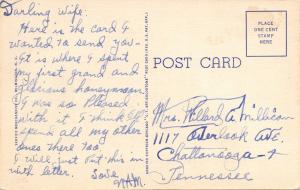 Darling Wife:
Here is the card I
wanted to send you-
It is where I spent
my first grand and
glorious honeymoon
I was so pleased
with it I think I'll
spend all my other
ones there too.
I will just put this in
with letter.
Love
W.A.M.
POST CARD
PLACE
ONE CENT
STAMP
HERE
Mrs. Willard A. Millican
1117 Overlook Ave.
Chattanooga-4
Tennessee